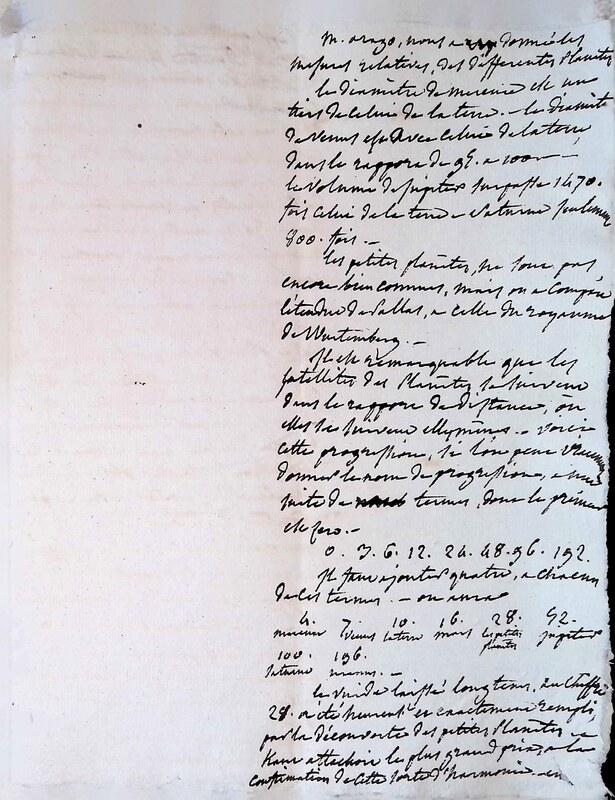 m. arago, nous a donné les
mesures relatives, des différentes planètes
le diamètre de mercure est un
tiers de celui de la terre. - le diamètre
de venus est avec celui de la terre
dans le rapport de 95. a 100 -
le volume de jupiter surpasse 1470.
fois celui de la terre - saturne seulement
800. fois. -
les petites planètes, ne sont pas
encore bien connues, mais on a comparé
l'étendue de Pallas, a celle du royaume
de Wurtemberg. -
Il est remarquable que les
satellites des Planètes se suivent
dans le rapport de distance, où
elles se suivent elles mêmes. - voici
cette progression, si l'on peut vraiment
donner le nom de progression, a une
suite de termes, dont le premier
est zero. -
0. 3. 6. 12. 24. 48. 96. 192.
Il faut ajouter quatre, a chacun
de ces termes. - on aura
4. 7. 10. 16. 28. 52.
mercure venus la terre mars les petites planètes jupiter
100. 196.
saturne uranus. -
le vuide laissé longtems, au chiffre
28. a été heureusement rempli,
par la découverte des petites Planètes -
Kant attachoit le plus grand prix, a la
confirmation de cette sorte d'harmonie - en